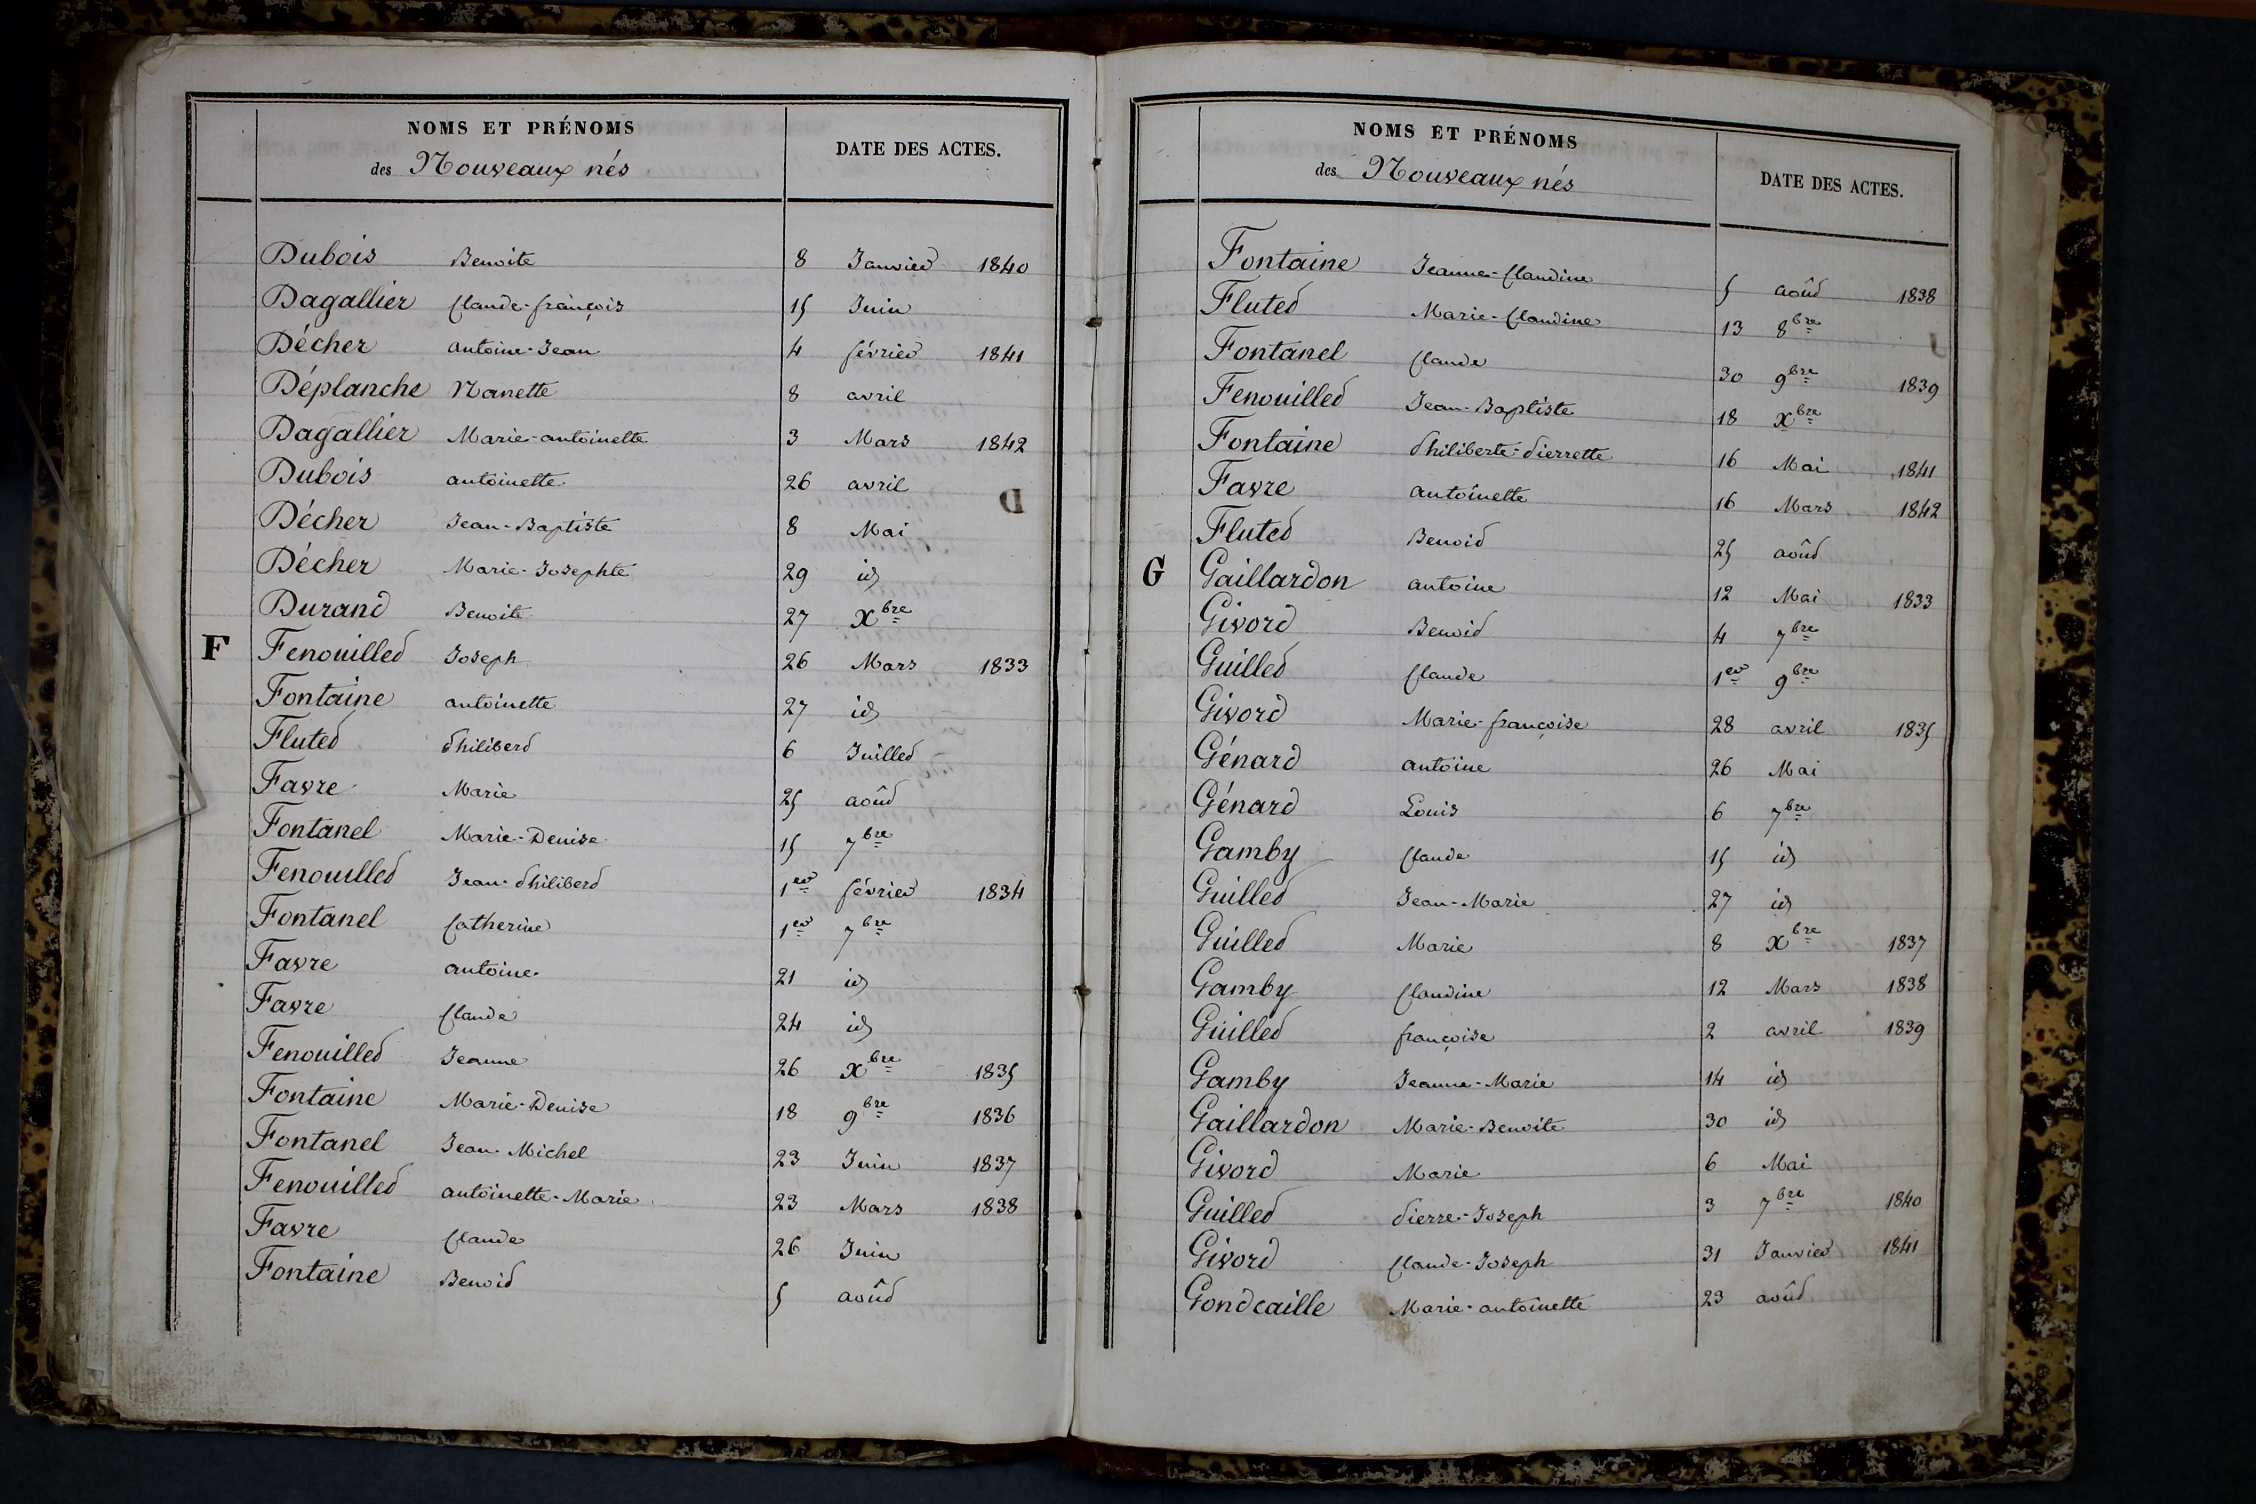 NOMS ET PRÉNOMS
des Nouveaux nés
DATE DES ACTES.
Dubois Benoite 8 Janvier 1840
Dagallier Claude-françois 15 Juin
Décher antoine-Jean 4 février 1841
Déplanche Nanette 8 avril
Dagallier Marie-antoinette 3 Mars 1842
Dubois antoinette 26 avril
Décher Jean-Baptiste 8 Mai
Décher Marie-Josephte 29 id
Durand Benoite 27 Xbre
F Fenouillet Joseph 26 Mars 1833
Fontaine antoinette 27 id
Flutet Philibert 6 Juillet
Favre Marie 25 août
Fontanel Marie-Denise 15 7bre
Fenouillet Jean-Philibert 1er février 1834
Fontanel Catherine 1er 7bre
Favre antoine 21 id
Favre Claude 24 id
Fenouillet Jeanne 26 Xbre 1835
Fontaine Marie-Denise 18 9bre 1836
Fontanel Jean-Michel 23 Juin 1837
Fenouillet antoinette-Marie 23 Mars 1838
Favre Claude 26 Juin
Fontaine Benoit 5 août
NOMS ET PRÉNOMS
des Nouveaux nés
DATE DES ACTES.
Fontaine Jeanne-Claudine 5 août 1838
Flutet Marie-Claudine 13 8bre
Fontanel Claude 30 9bre 1839
Fenouillet Jean-Baptiste 18 Xbre
Fontaine Philiberte-Pierrette 16 Mai 1841
Favre antoinette 16 Mars 1842
Flutet Benoit 25 août
G Gaillardon antoine 12 Mai 1833
Givord Benoit 4 7bre
Guillet Claude 1er 9bre
Givord Marie-françoise 28 avril 1835
Génard antoine 26 Mai
Génard Louis 6 7bre
Gamby Claude 15 id
Guillet Jean-Marie 27 id
Guillet Marie 8 Xbre 1837
Gamby Claudine 12 Mars 1838
Guillet françoise 2 avril 1839
Gamby Jeanne-Marie 14 id
Gaillardon Marie-Benoite 30 id
Givord Marie 6 Mai
Guillet Pierre-Joseph 3 7bre 1840
Givord Claude-Joseph 31 Janvier 1841
Gondcaille Marie-antoinette 23 août